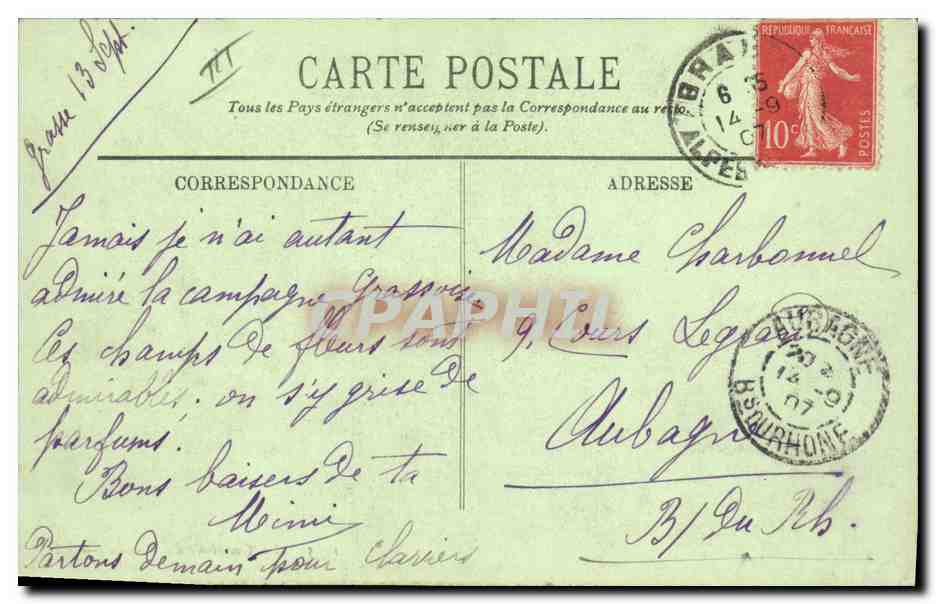 Grasse 13 Sept.
CARTE POSTALE
Tous les Pays étrangers n'acceptent pas la Correspondance au recto
(Se renseigner à la Poste).
CORRESPONDANCE
Jamais je n'ai autant
admiré la campagne Grassoise.
Ces champs de fleurs sont
admirables. on s'y grise de
parfums.
Bons baisers de ta
Mimi
Partons demain pour Claviers
ADRESSE
Madame Charbonnel
9, Cours Legrand
Aubagne
B/ du Rh.
REPUBLIQUE FRANÇAISE
10c
POSTES
ALPES
6
14 -9
07
AUBAGNE
14 -9
07
BS DU RHONE
CPAPHIL